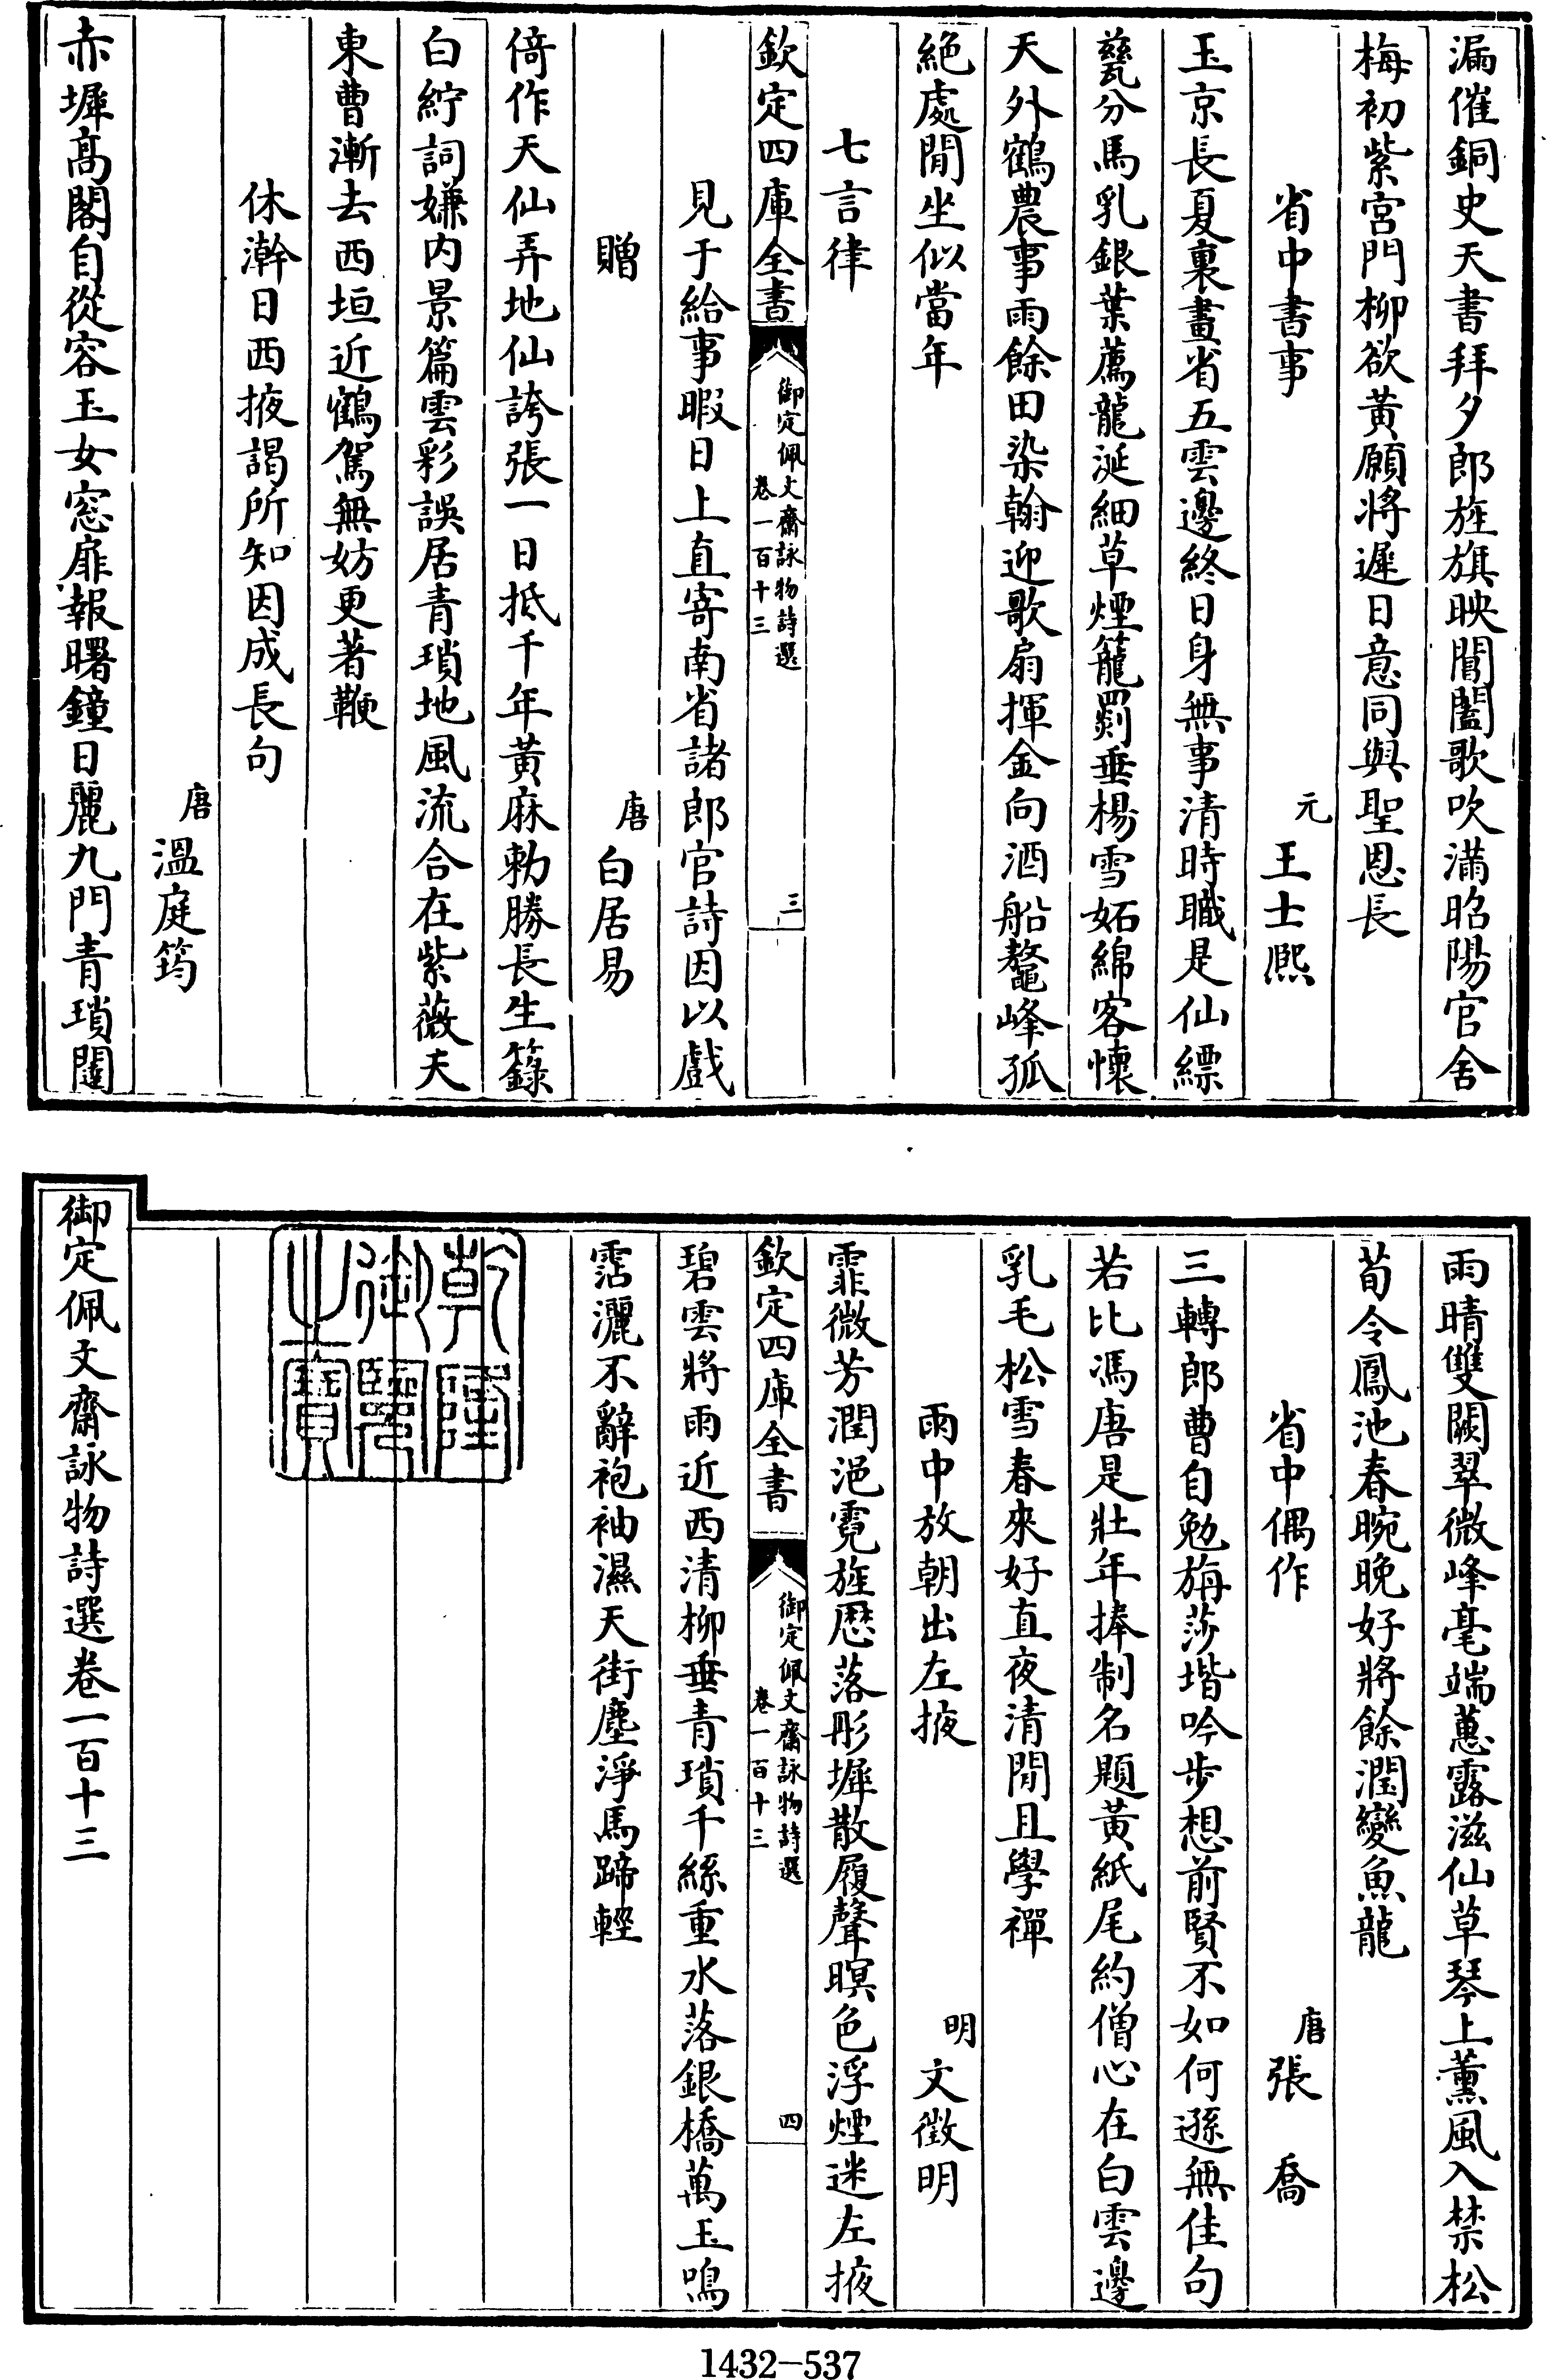 漏催銅史天書拜夕郎旌旗映閶闔歌吹滿昭陽官舍
梅初紫宮門柳欲黃願將遲日意同與聖恩長
省中書事
元 王士熈
玉京長夏裏畫省五雲邊終日身無事清時職是仙縹
甆分馬乳銀葉薦龍涎細草煙籠罽垂楊雪妬綿客懷
天外鶴農事雨餘田染翰迎歌扇揮金向酒船鼇峰孤
絕處閒坐似當年
七言律
欽定四庫全書
御定佩文齋詠物詩選
卷一百十三
三
見于給事暇日上直寄南省諸郎官詩因以戲
贈
唐 白居易
倚作天仙弄地仙誇張一日抵千年黃麻勅勝長生籙
白紵詞嫌內景篇雲彩誤居青瑣地風流合在紫薇天
東曹漸去西垣近鶴駕無妨更著鞭
休澣日西掖謁所知因成長句
唐 溫庭筠
赤墀高閣自從容玉女窓扉報曙鐘日麗九門青瑣闥
雨晴雙闕翠微峰毫端蕙露滋仙草琴上薰風入禁松
荀令鳳池春晼晚好將餘潤變魚龍
省中偶作
唐 張喬
三轉郎曹自勉旃莎堦吟步想前賢不如何遜無佳句
若比馮唐是壯年捧制名題黃紙尾約僧心在白雲邊
乳毛松雪春來好直夜清閒且學禪
雨中放朝出左掖
明 文徵明
霏微芳潤浥霓旌歷落彤墀散履聲暝色浮煙迷左掖
欽定四庫全書
御定佩文齋詠物詩選
卷一百十三
四
碧雲將雨近西清柳垂青瑣千絲重水落銀橋萬玉鳴
霑灑不辭袍袖濕天街塵淨馬蹄輕
乾隆御覽之寶
御定佩文齋詠物詩選卷一百十三
1432-537